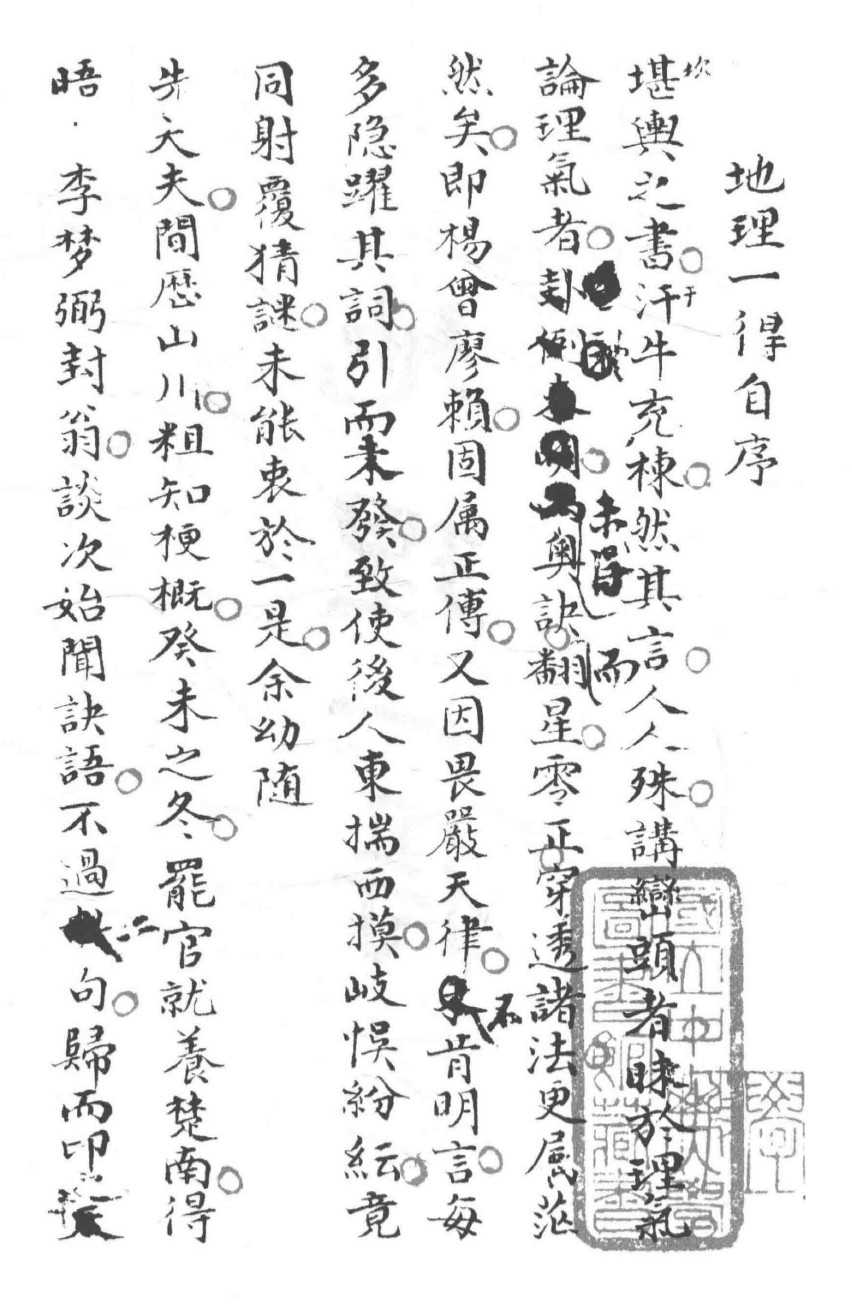 地理一得自序
堪輿之書汗牛充棟然其言人人殊講巒頭者昧於理氣
坎
于
論理氣者卦例奧訣翻星零正穿透諸法更屬茫
未得
而
然矣即楊曾廖賴固属正傳又因畏嚴天律不肯明言每
多隐躍其詞引而未發致使後人東揣西摸岐悞紛紜竟
同射覆猜謎未能衷於一是余幼随
先大夫間歷山川粗知梗概癸未之冬罷官就養楚南得
晤李梦弼封翁談次始聞訣語不過一二句歸而印